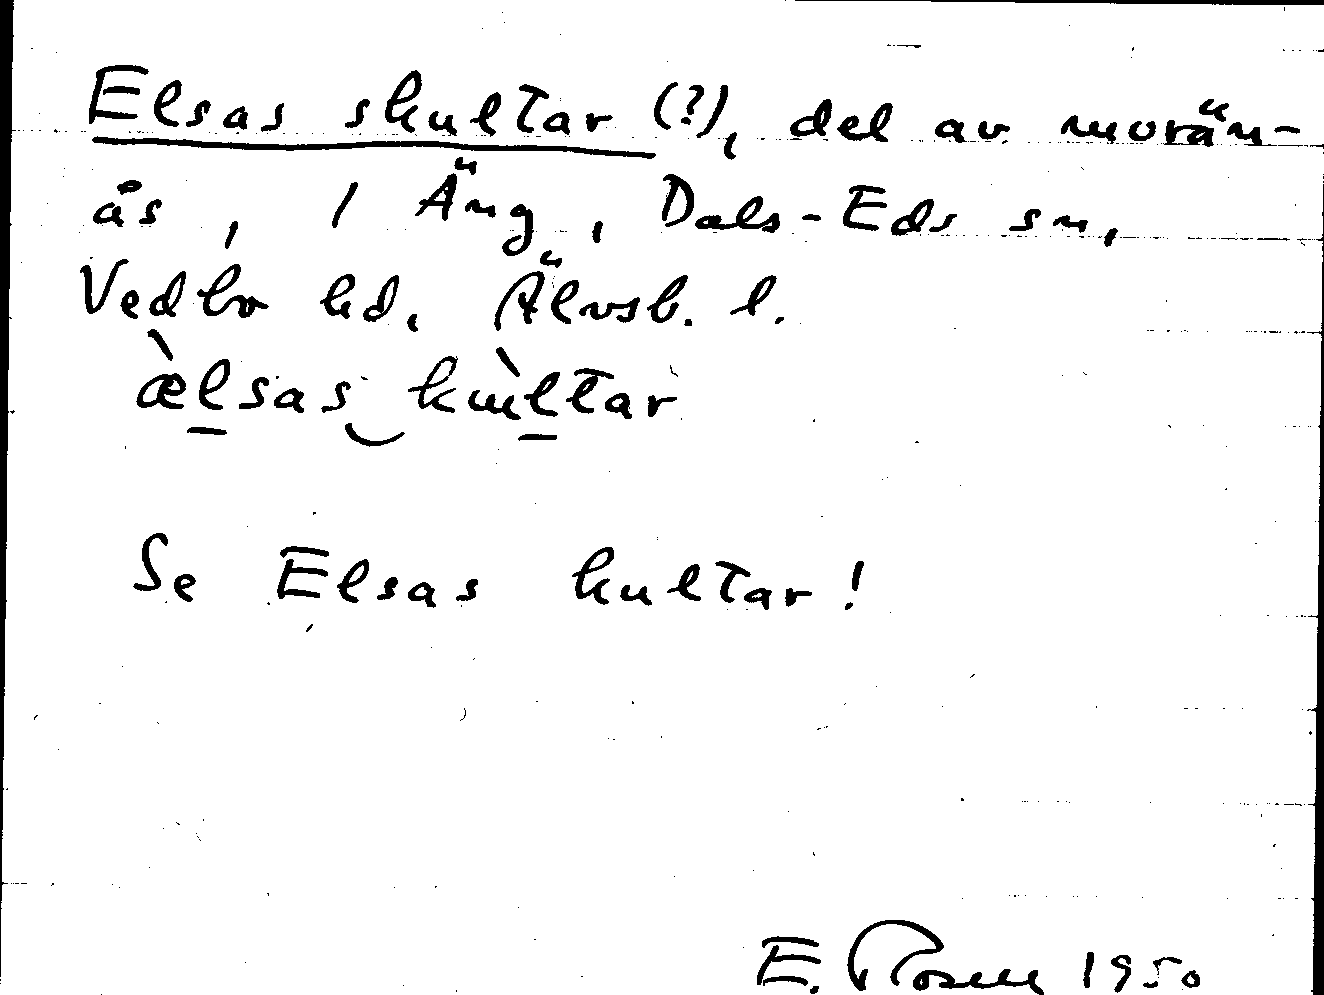 Elsas skultar (?), del av morän-
ås, 1 Äng, Dals-Eds sn,
Vedbo hd, Älvsb. l.
æ̀lsas‿kùltar
Se Elsas kultar!
E. Rosell 1950